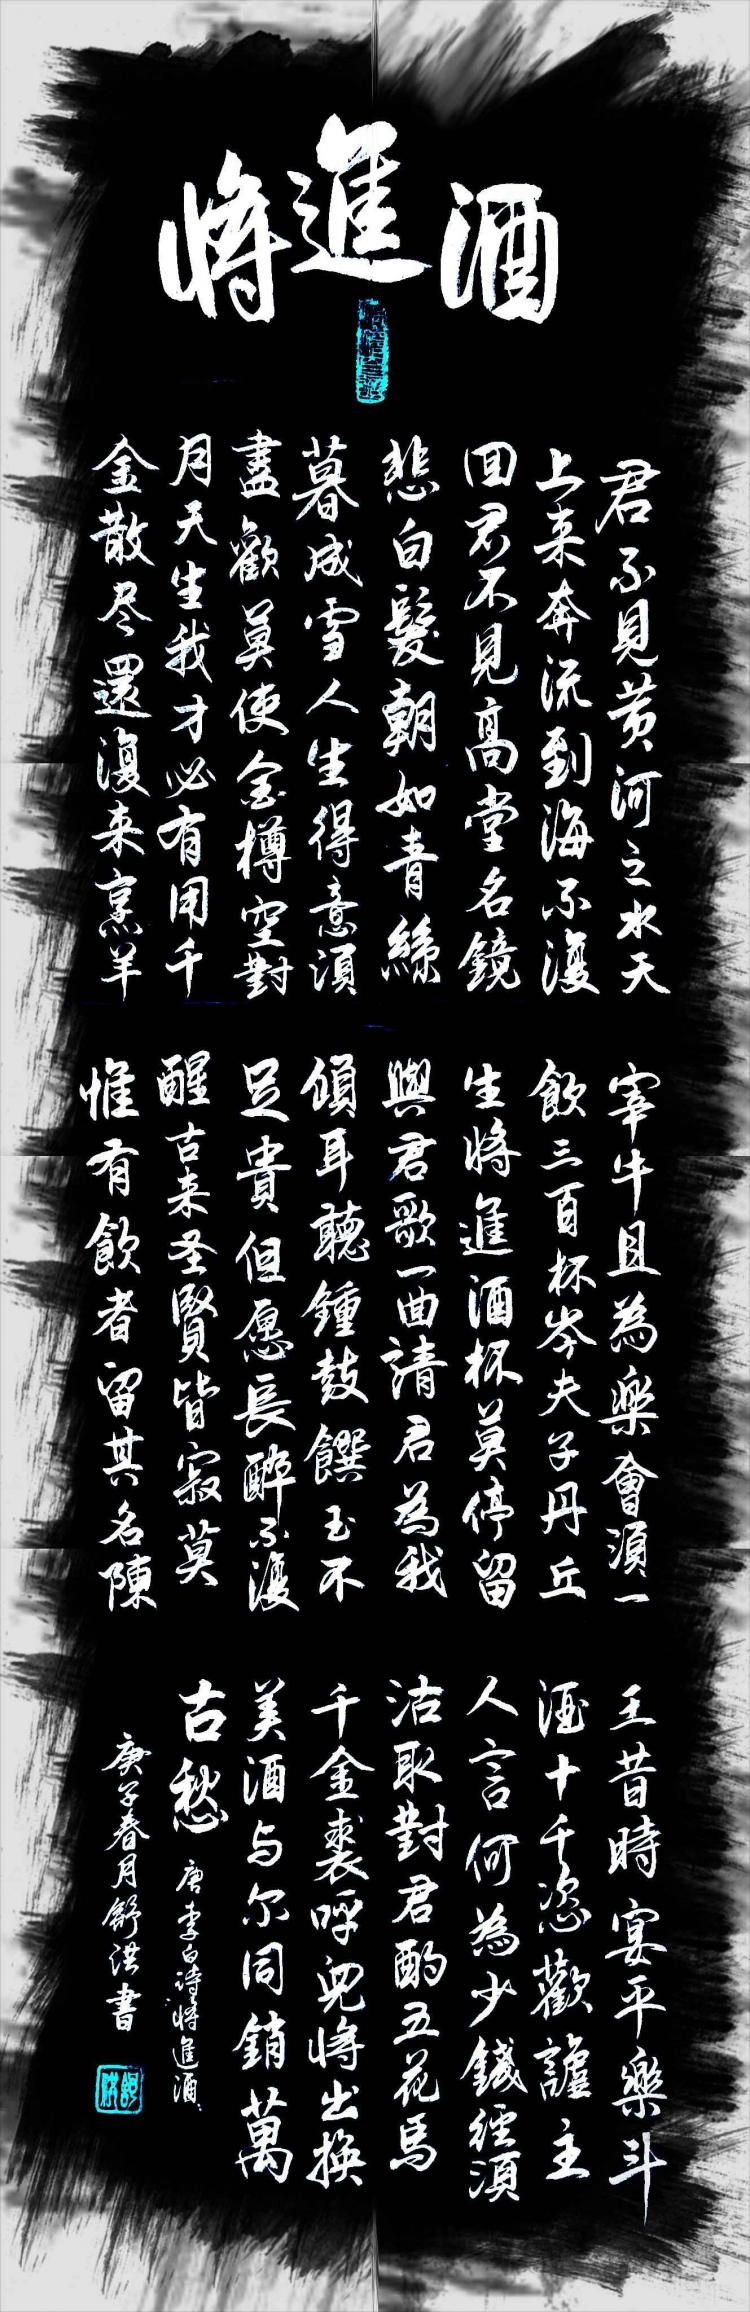 將進酒
君不見黄河之水天
上来奔流到海不復
回君不見高堂名鏡
悲白髮朝如青絲
暮成雪人生得意須
盡歡莫使金樽空對
月天生我才必有用千
金散尽還復来烹羊
宰牛且為樂會須一
飲三百杯岑夫子丹丘
生將進酒杯莫停留
與君歌一曲請君為我
傾耳聽鍾鼓饌玉不
足貴但愿長醉不復
醒古来圣賢皆寂莫
惟有飲者留其名陳
王昔時宴平樂斗
酒十千恣歡謔主
人言何為少錢經須
沽取對君酌五花馬
千金裘呼兒將出換
美酒与尔同銷萬
古愁 唐李白詩將進酒
庚子春月舒洪書